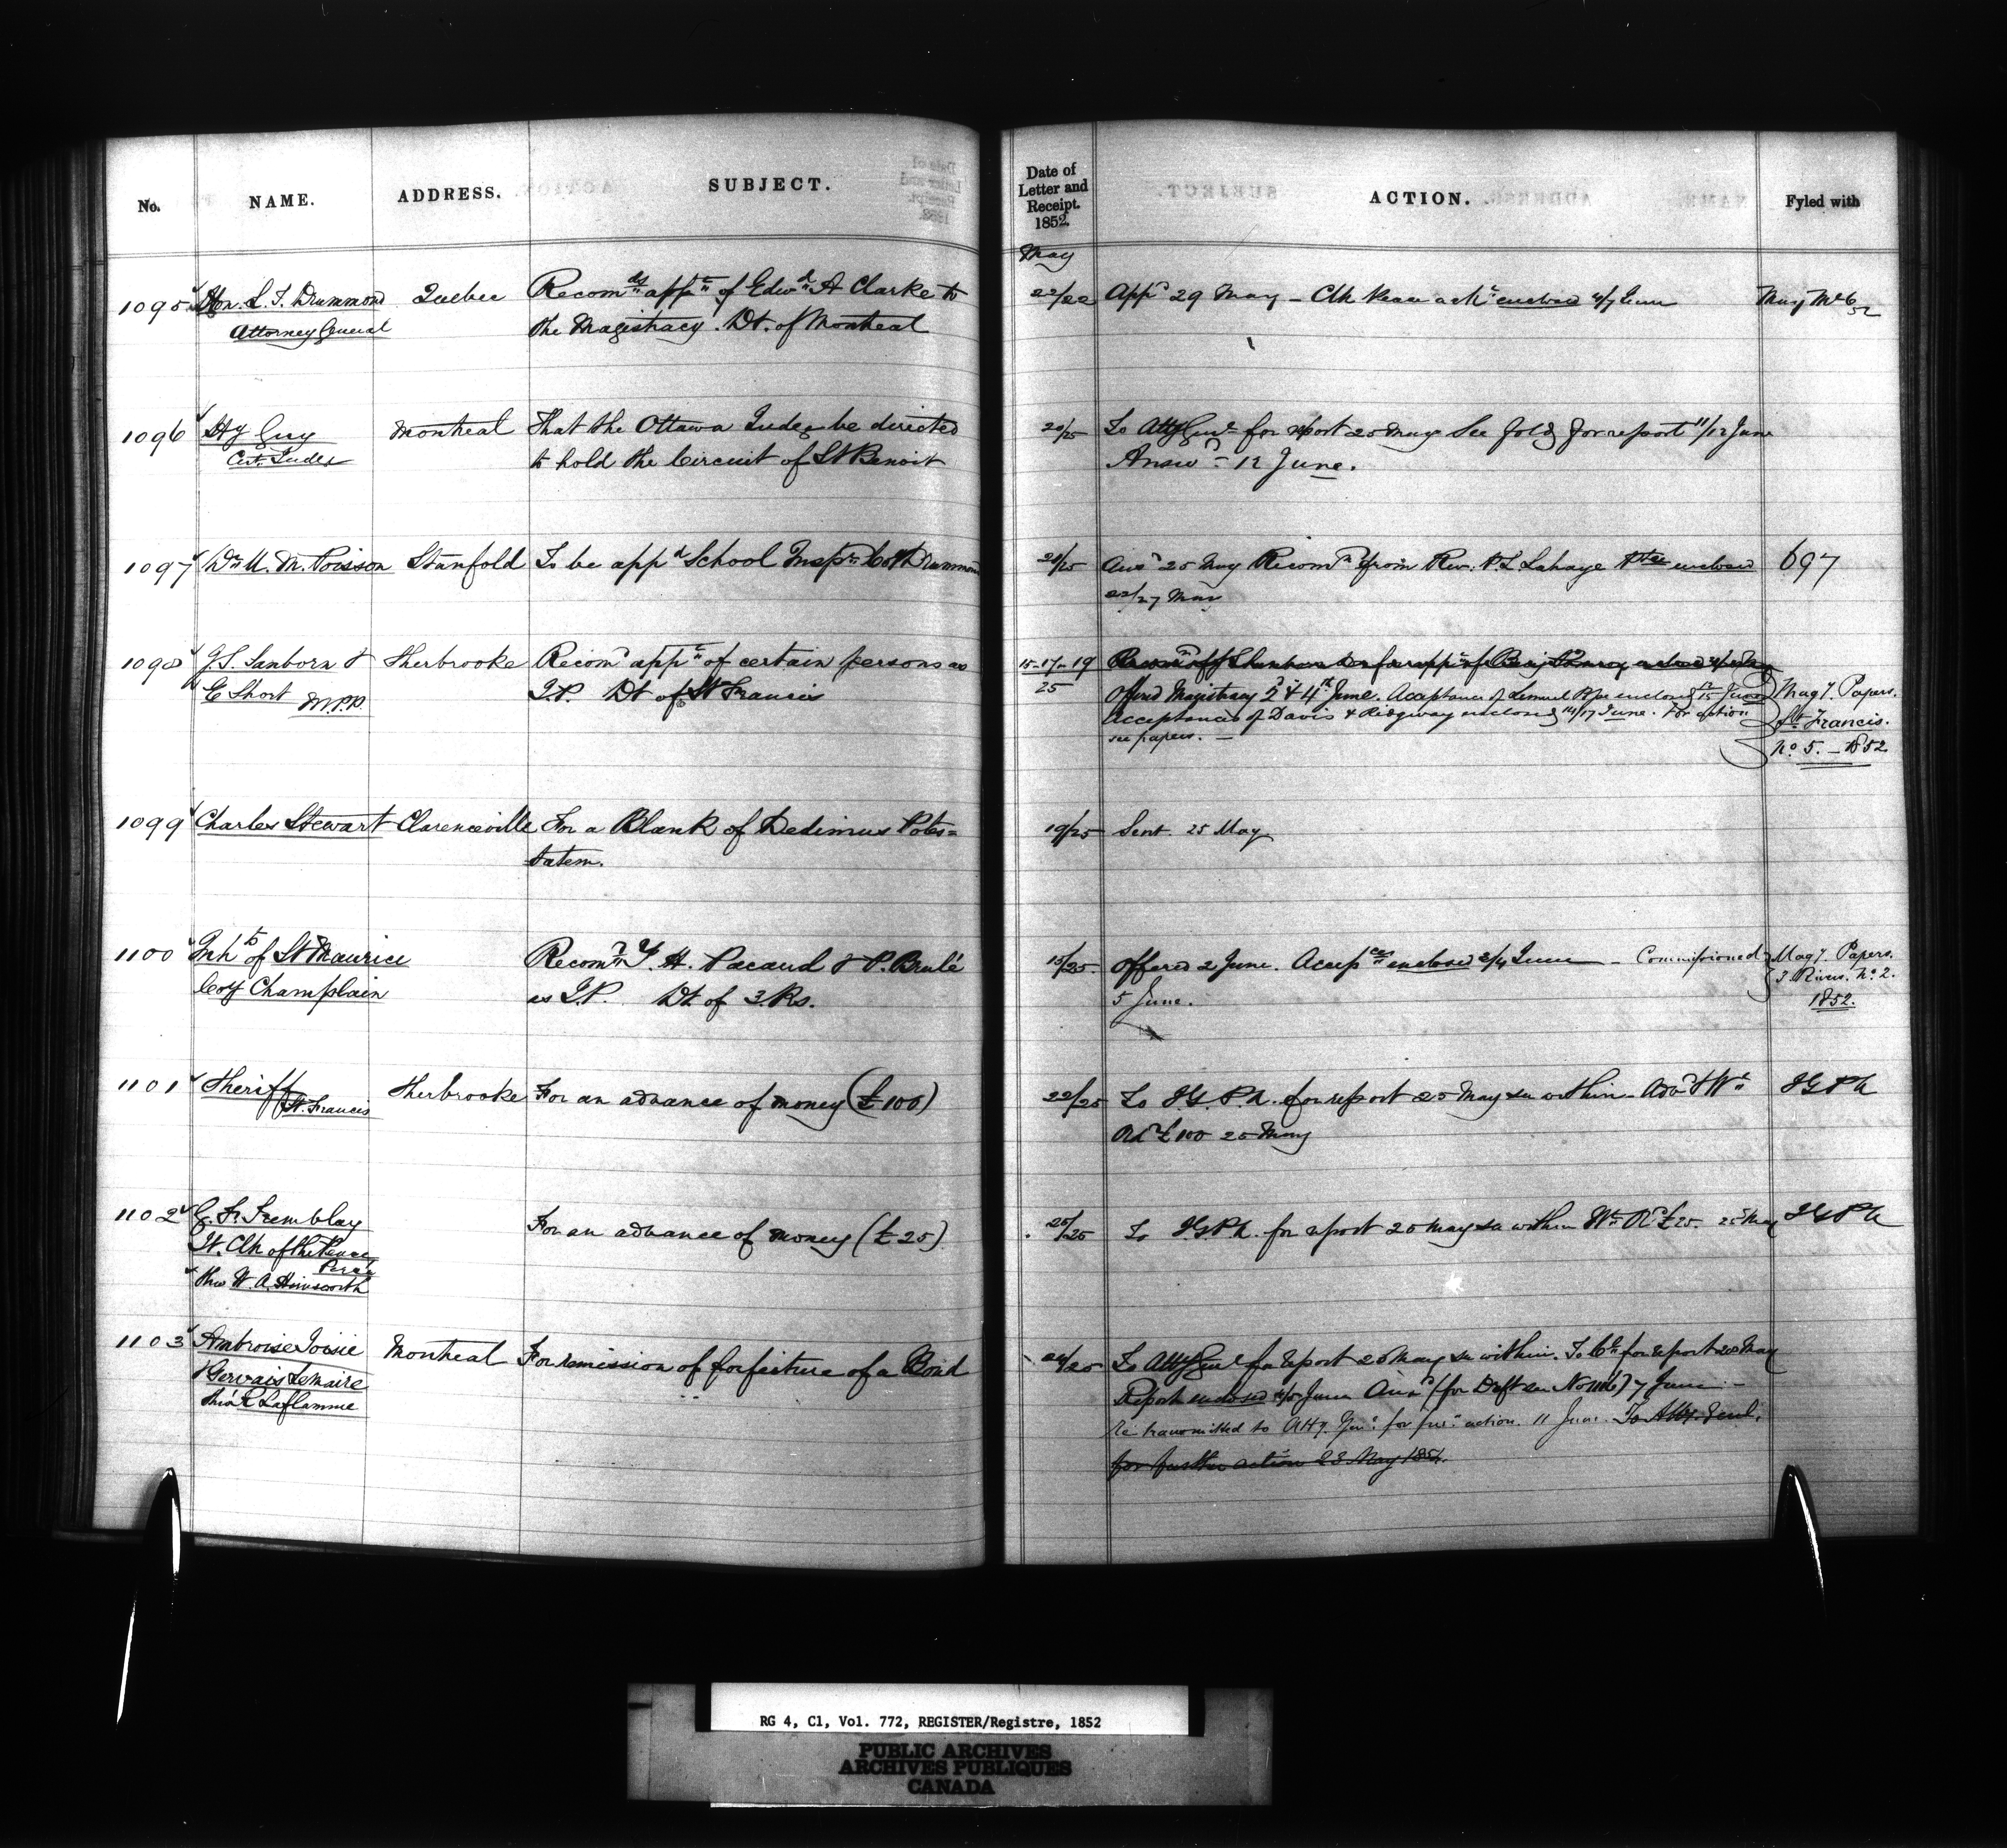 No. NAME. ADDRESS. SUBJECT.
1095 Hon. L. T. Drummond Quebec Recom.dg app.t of Edw.d A Clarke to
Attorney General the Magistracy. Dt. of Montreal
1096 Hy Guy Montreal That the Ottawa Judge be directed
Cirt. Judge to hold the Circuit of St Benoit
1097 Dr U. M. Poisson Stanfold To be app.d School Insp.r Coy Drummond
1098 J. S. Sanborn & Sherbrooke Recom.d app.t of certain persons as
E Short M.P.P. J.P. Dt of St Francis
1099 Charles Stewart Clarenceville For a Blank of Dedimus Potes=
tatem.
1100 Inh.ts of St Maurice Recom.n Y. H. Pacaud & P. Brulé
Coy Champlain as J.P. Dt of 3.Rs.
1101 Sheriff Sherbrooke For an advance of money (£100)
St. Francis
1102 G. Tremblay For an advance of money (£25)
Clk of the Peace
Percé
thro W. A.
1103 Ambroise Montreal For remission of forfeiture of a Bond
& Gervais Lemaire
thro' R Laflamme
Date of
Letter and
Receipt.
1852.
ACTION. Fyled with
May
22/22 App.d 29 May – Clk Peace ack.t enclosed 4/7 June Mag Mc 6
52
20/25 To Atty Gen.l for report 25 May See fold.g for report 11/12 June
Answ.d 12 June.
21/25 Ans.d 25 May Recom.n from Rev. P. L. Lahaye Ptre enclosed 697
22/27 May
15-17-19
25
Offered Magistracy 2.d & 4.th June. Acceptance of Lemuel Pope enclosed 15 June Mag.y. Papers.
Acceptances of Davis & Ridgway enclosed 14/17 June. For action St Francis.
see papers. — No 5. – 1852.
19/25 Sent. 25 May
15/25 Offered 2 June. Accep.ces enclosed 2/4 June – Commissioned Mag.y. Papers.
5 June. 3 Rivers. No. 2.
1852.
22/25 To I.G. P.A. for report 25 May see within – Adv.d & W.t I G P A
£100 25 May
25/25 To I.G.P.A. for report 25 May see within W.t £25. 25 May I G P A
24/25 To Atty Gen.l for report 25 May see within. To for report 28 May
Report enclosed June Ans.d (for Dft see No 1116) 7 June –
Re-transmitted to Atty. Gen.l for fur.r action. 11 June. To Atty. Genl.
for further action 28 May 1852.
RG 4, C1, Vol. 772, REGISTER/Registre, 1852
PUBLIC ARCHIVES
ARCHIVES PUBLIQUES
CANADA